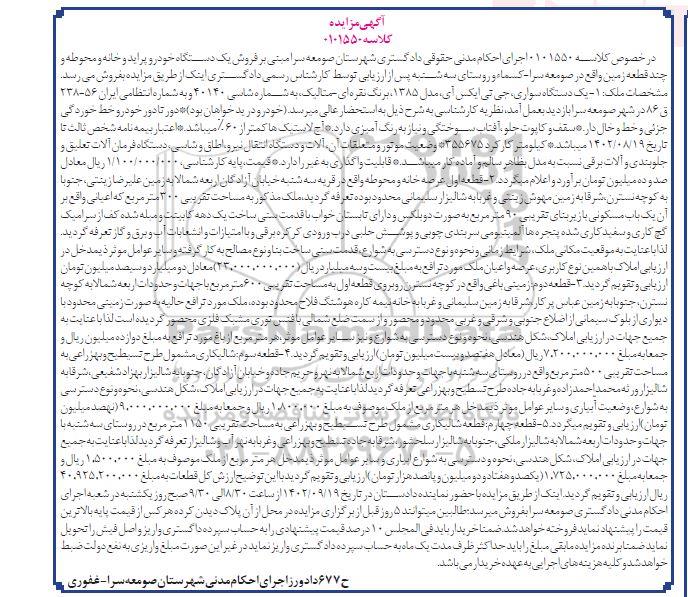 آگهی مزایده
کلاسه ۰۱۰۱۵۵۰
در خصوص کلاسه ۰۱۰۱۵۵۰ اجرای احکام مدنی حقوقی دادگستری شهرستان صومعه سرا مبنی بر فروش یک دستگاه خودرو پراید و خانه و محوطه و
چند قطعه زمین واقع در صومعه سرا-کسماء و روستای سه شنبه پس از ارزیابی توسط کارشناس رسمی دادگستری اینک از طریق مزایده بفروش می رسد.
مشخصات ملک: ۱-یک دستگاه سواری،جی تی ایکس آی،مدل ۱۳۸۵،برنگ نقره ای-متالیک،به شماره شاسی ۴۰۱۴۰ و به شماره انتظامی ایران ۵۶-۲۳۸
ق ۸۶ در شهر صومعه سرا بازدید بعمل آمد،نظریه کارشناسی به شرح ذیل به استحضار عالی میرسد.(خودرو در ید خواهان بود)*دور تا دور خودرو خط خوردگی
جزئی و خط و خال دار.*سقف و کاپوت جلو،آفتاب سوختگی و نیاز به رنگ آمیزی دارد.*آج لاستیک ها کمتر از ۶۰٪میباشد.*اعتبار بیمه نامه شخص ثالث تا
تاریخ ۱۴۰۲/۰۸/۱۹ میباشد.*کیلومتر کارکرد ۳۵۵۶۷۵* وضعیت موتور و متعلقات آن،آلات و دستگاه انتقال نیرو،اطاق و شاسی،دستگاه فرمان آلات تعلیق و
جلوبندی و آلات برقی نسبت به مدل بظاهر سالم و آماده کار میباشد.* قابلیت واگذاری به غیر را دارد.* قیمت،پایه کارشناسی،۱/۱۰۰/۰۰۰/۰۰۰ ریال معادل
صد و ده میلیون تومان برآورد و اعلام میگردد.۲-قطعه اول عرصه خانه و محوطه واقع در قریه سه شنبه خیابان آزادگان اربعه شمالا به زمین علیرضا زینتی،جنوبا
به کوچه نسترن،شرقا به زمین مهوش زینتی و غربا به شالیزار سلیمانی محدود بوده تعرفه گردید،ملک مذکور به مساحت تقریبی ۳۰۰متر مربع که اعیانی واقع بر
آن یک باب مسکونی با زیربنای تقریبی ۹۰ متر مربع به صورت دوبلکس و دارای تابستان خواب با قدمت ستی ساخت یک دهه کابینت و مبله شده کف از سرامیک
گچ کاری و سفیدکاری شده پنجره ها آلمینیومی سربندی چوبی و پوشش حلبی درب ورودی کرکره برقی و با امتیازات و انشعابات آب و برق و گاز تعرفه گردید.
لذا با عنایت به موقعیت مکانی ملک،شرایط زمانی و نحوه و نوع دسترسی به شوارع،قدمت سنی ساخت بنا و نوع مصالح به کار گرفته و سایر عوامل موثر ذیمدخل در
ارزیابی املاک با همین نوع کاربری،عرصه و اعیان ملک مورد ترافع به مبلغ بیست و سه میلیارد ریال (۲۳،۰۰۰،۰۰۰،۰۰۰)معادل دو میلیارد و سیصد میلیون تومان
ارزیابی و تقویم گردید.۳-قطعه دوم زمینی باغی واقع در کوچه نسترن روبروی قطعه اول به مساحت تقریبی ۶۰۰متر مربع با جهات و حدودات اربعه شمالا به کوچه
نسترن،جنوبا به زمین عباس پرکار،شرقا به زمین سلیمانی و غربا به خانه نیمه کاره هوشنگ فلاح محدود بوده،ملک مورد ترافع حالیه به صورت زمینی محدود با
دیواری از بلوک سیمانی از اضلاع جنوبی و شرقی و غربی محدود و محصور و از سمت ضلع شمالی با فنس توری مشبک فلزی محصور گردیده است لذا با عنایت به
جمیع جهات در ارزیابی املاک،شکل هندسی،نحوه و نوع دسترسی به شوارع و نیز سایر عوامل موثر،هر متر مربع از باغ مورد ترافع به مبلغ دوازده میلیون ریال و
جمعا به مبلغ ۷،۲۰۰،۰۰۰،۰۰۰ریال (معادل هفتصد و بیست میلیون تومان)ارزیابی و تقویم گردید.۴-قطعه سوم:شالیکاری مشمول طرح تسطیح و بهزراعی به
مساحت تقریبی ۵۰۰متر مربع واقع در روستای سه شنبه با جهات و حدودات اربعا شمالا به نهر و حریم جاده و خیابان آزادگان،جنوبا به شالیزار بهزاد شفیعی،شرقا به
شالیزار ورثه محمد احمدزاده و غربا به جاده طرح تسطیح و بهزراعی تعرفه گردید لذا با عنایت به جمیع جهات در ارزیابی املاک،شکل هندسی،نحوه و نوع دسترسی
به شوارع،وضعیت آبیاری و سایر عوامل موثر ذیمدخل هر متر مربع از ملک موصوف به مبلغ ۱،۸۰۰،۰۰۰ ریال و جمعا به مبلغ ۹،۰۰۰،۰۰۰،۰۰۰(نهصد میلیون
تومان)ارزیابی و تقویم میگردد.۵-قطعه چهارم:قطعه شالیکاری مشمول طرح تسطیح و بهزراعی به مساحت تقریبی ۱۱۵۰متر مربع در روستای سه شنبه با
جهات و حدودات اربعه شمالا به شالیزار ملکی،جنوبا به شالیزار سلحشور،شرقا به جاده تسطیح و بهزراعی و غربا به نهرآب و شالیزار تعرفه گردید لذا با عنایت به جمیع
جهات در ارزیابی املاک،شکل هندسی،نحوه و دسترسی به شوارع آبیاری و سایر عوامل موثر ذیمدخل هر متر مربع از ملک موصوف به مبلغ ۱،۵۰۰،۰۰۰ ریال و
جمعا به مبلغ ۱،۷۲۵،۰۰۰،۰۰۰(یکصد و هفتاد و دو میلیون و پانصد هزار تومان)ارزیابی و تقویم گردید با این توضیح ارزش کل قطعات به مبلغ ۴۰،۹۲۵،۲۰۰،۰۰۰
ریال ارزیابی و تقویم گردید.اینک از طریق مزایده با حضور نماینده دادستان در تاریخ ۱۴۰۲/۰۹/۱۹ از ساعت ۸/۳۰الی ۹/۳۰ صبح روز یکشنبه در شعبه اجرای
احکام مدنی دادگستری صومعه سرا بفروش میرسد:طالبین میتوانند ۵روز قبل از برگزاری مزایده در محل از آن پلاک دیدن کرده هر کس از قیمت پایه بالاترین
قیمت را پیشنهاد نماید فروخته خواهد شد.ضمنا خریدار باید فی المجلس ۱۰ درصد قیمت پیشنهادی را به حساب سپرده دادگستری واریز و اصل فیش را تحویل
نماید ضمنا برنده مزایده مابقی مبلغ را باید حداکثر ظرف مدت یک ماه به حساب سپرده دادگستری واریز نماید در غیر این صورت مبلغ واریزی به نفع دولت ضبط
خواهد شد و کلیه هزینه های اجرایی به عهده خریدار می باشد.
ح۶۷۷ دادورز اجرای احکام مدنی شهرستان صومعه سرا-غفوری